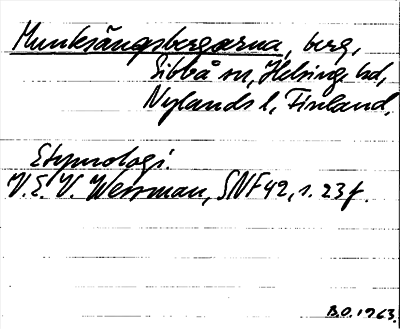 Munksängsbergærna, berg,
Sibbå sn, Helsinge hd,
Nylands l, Finland,
Etymologi.
V.E.V. Wessman, SNF 42, s. 23 f.
B.O. 1963.